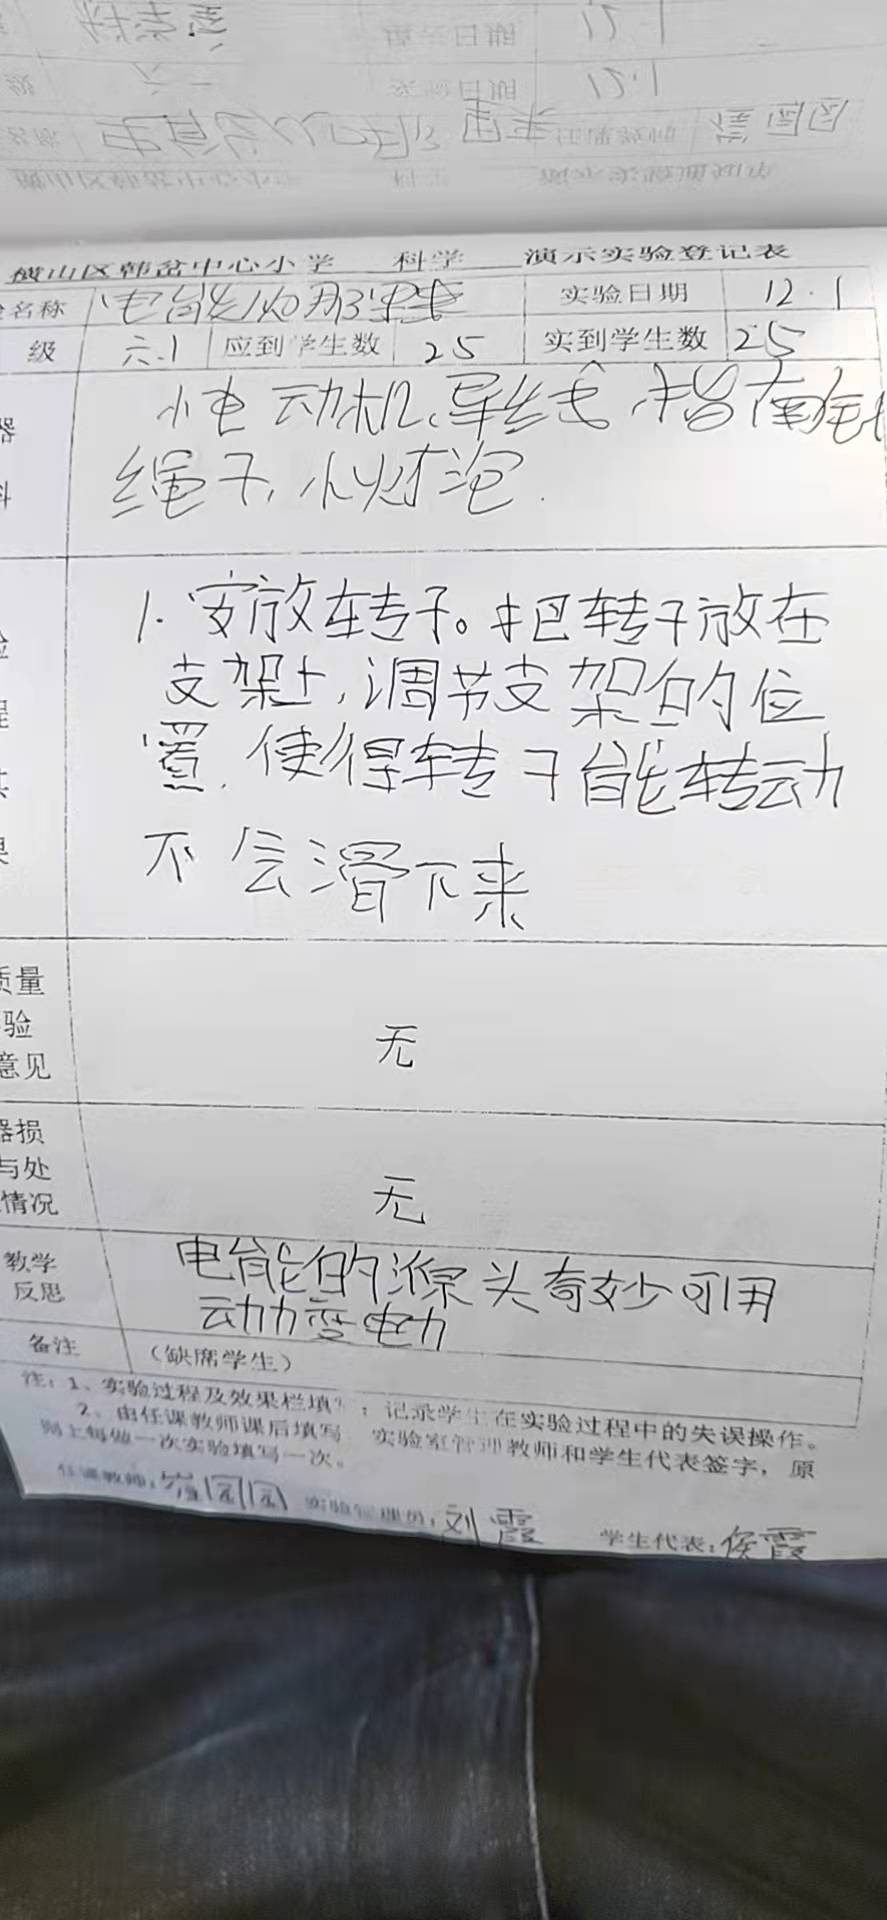 横山区韩岔中心小学 科学 演示实验登记表
名称 电能从 实验日期 12.1
级 六.1 应到学生数 25 实到学生数 25
器 小电动机、导线、指南针
绳子,小灯泡.
1.安放转子。把转子放在
支架上,调节支架的位
置.使得转子能转动
不会滑下来
质量
验
意见
无
器损
与处
情况
无
教学
反思
电能的源头奇妙可用
动力变电力
备注 (缺席学生)
注:1、实验过程及效果栏填 :记录学生在实验过程中的失误操作。
2、由任课教师课后填写 实验室管理教师和学生代表签字,原
则上每做一次实验填写一次。
任课教师: 实验管理员:刘霞 学生代表:侯霞